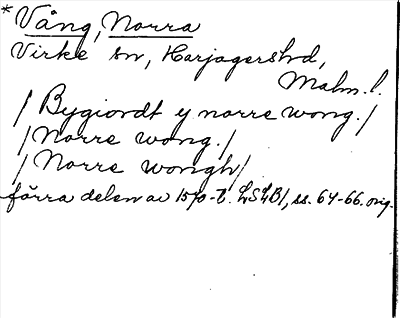 *Vång, Norra
Virke sn, Harjagers hd,
Malm. l.
/ Bygiordt y norre wong. /
/ Norre wong. /
/ Norre wongh /
förra delen av 1570-t. LSLB1, ss. 64-66. orig.